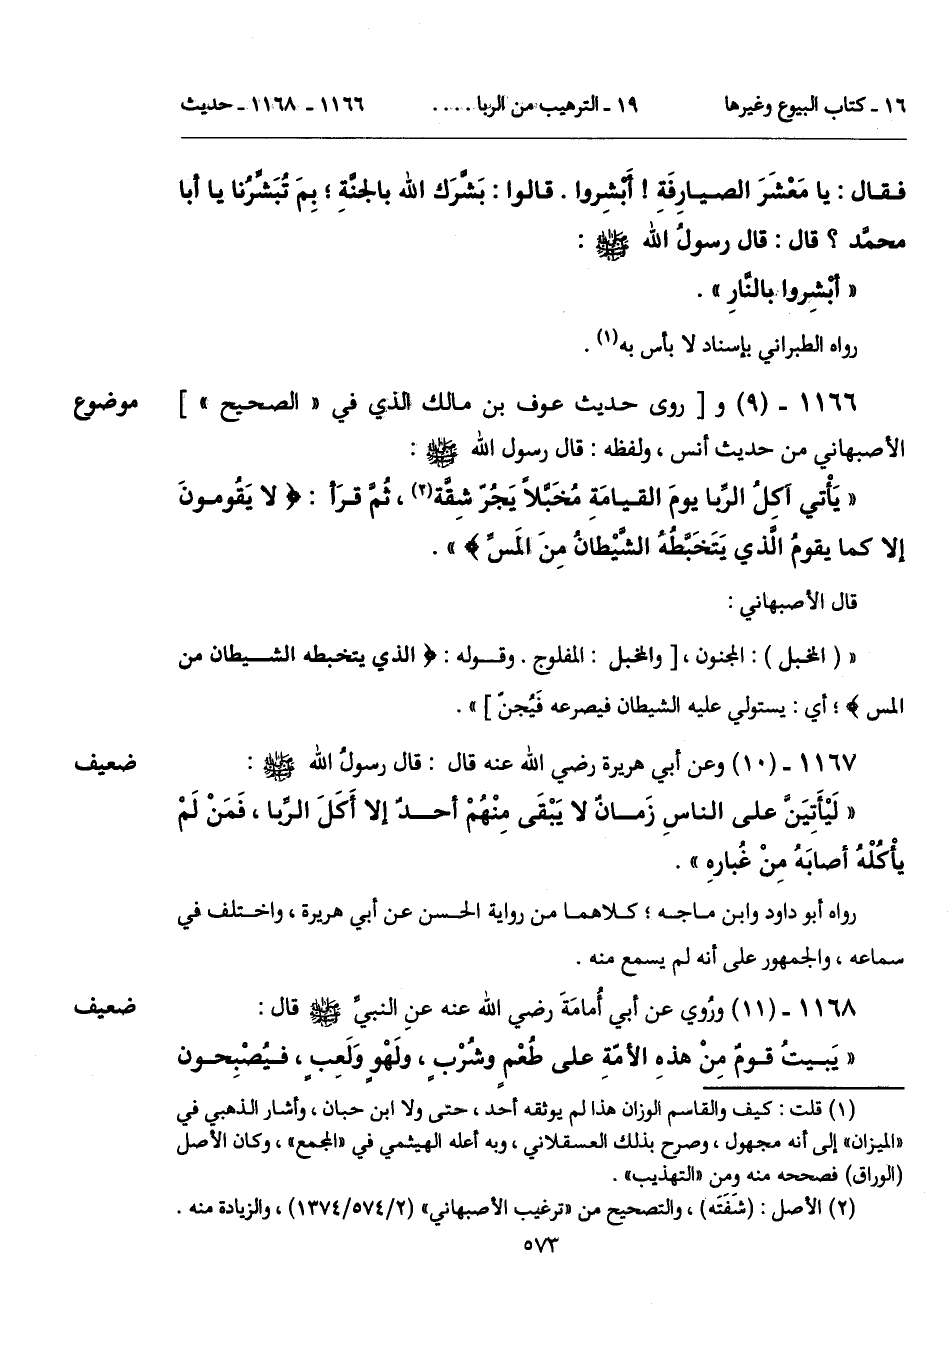 ١٦ ـ كتاب البيوع وغيرها ١٩ ـ الترهيب من الربا .... ١١٦٦ ـ ١١٦٨ ـ حديث
فقال : يا مَعْشَرَ الصيارِفَةِ ! أَبْشِروا . قالوا : بَشَّرَك الله بالجنَّةِ ؛ بِمَ تُبَشِّرُنا يا أبا
محمَّد ؟ قال : قال رسولُ الله ﷺ :
« أَبْشِروا بالنَّارِ » .
رواه الطبراني بإسناد لا بأس به(١) .
١١٦٦ ـ (٩) و [ روى حديث عوف بن مالك الذي في « الصحيح » ] موضوع
الأصبهاني من حديث أنس ، ولفظه : قال رسول الله ﷺ :
« يَأْتي آكِلُ الرِّبا يومَ القيامَةِ مُخَبَّلاً يَجُرّ شِقَّة(٢) ، ثُمَّ قرَأ : ﴿ لا يَقُومونَ
إلا كما يقومُ الَّذي يَتَخَبَّطُهُ الشَّيْطانُ مِنَ المَسِّ ﴾ » .
قال الأصبهاني :
« ( المخبل ) : المجنون ، [ والمخبل : المفلوج . وقوله : ﴿ الذي يتخبطه الشيطان من
المس ﴾ ؛ أي : يستولي عليه الشيطان فيصرعه فَيُجنّ ] » .
١١٦٧ ـ (١٠) وعن أبي هريرة رضي الله عنه قال : قال رسولُ الله ﷺ : ضعيف
« لَيْأَتِيَنَّ على الناسِ زَمانٌ لا يَبْقَى مِنْهُمْ أحدٌ إلا أَكَلَ الرِّبا ، فَمَنْ لَمْ
يأْكُلْهُ أصابَهُ مِنْ غُبارِهِ » .
رواه أبو داود وابن ماجه ؛ كلاهما من رواية الحسن عن أبي هريرة ، واختلف في
سماعه ، والجمهور على أنه لم يسمع منه .
١١٦٨ ـ (١١) ورُوي عن أبي أُمامَةَ رضي الله عنه عنِ النبيِّ ﷺ قال : ضعيف
« يَبيتُ قومٌ مِنْ هذهِ الأمَّةِ على طُعْمٍ وشُرْبٍ ، ولَهْوٍ ولَعِبٍ ، فيُصْبِحون
(١) قلت : كيف والقاسم الوزان هذا لم يوثقه أحد ، حتى ولا ابن حبان ، وأشار الذهبي في
«الميزان» إلى أنه مجهول ، وصرح بذلك العسقلاني ، وبه أعله الهيثمي في «المجمع» ، وكان الأصل
(الوراق) فصححه منه ومن «التهذيب» .
(٢) الأصل : (شَفَتَه) ، والتصحيح من «ترغيب الأصبهاني» (١٣٧٤/٥٧٤/٢) ، والزيادة منه .
٥٧٣